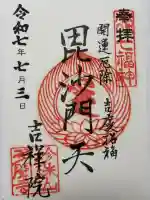 奉拝
七福神
開運厄除
吉祥招福
毘沙門天
吉祥院
令和七年七月三日